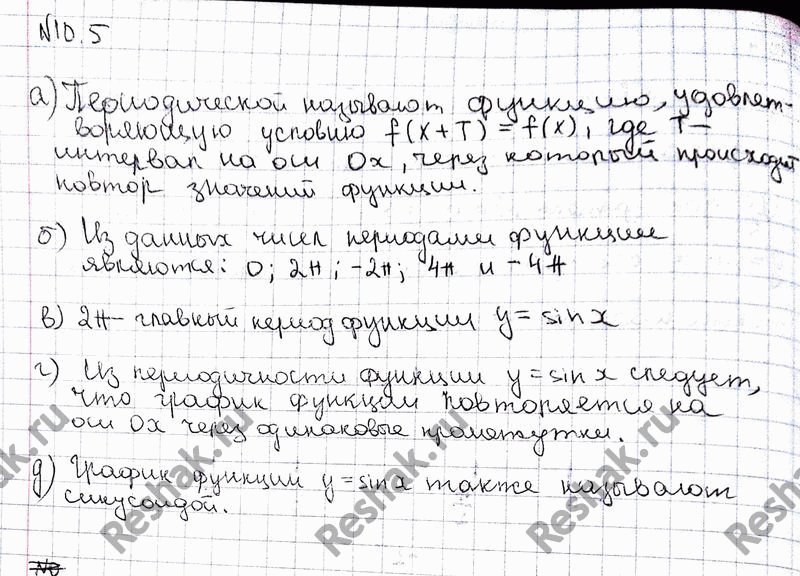 №10.5
а) Периодической называют функцию, удовлет-
воряющую условию f(x+T)=f(x), где T-
интервал на оси Ox, через который происходит
повтор значений функции.
б) Из данных чисел периодами функции
являются: 0; 2π; -2π; 4π и -4π
в) 2π- главный период функции y=sinx
г) Из периодичности функции y=sinx следует,
что график функции повторяется на
оси Ox через одинаковые промежутки.
д) График функции y=sinx также называют
синусоидой.
№
Reshak.ru
Reshak.ru
Reshak.ru
Reshak.ru
Reshak.ru